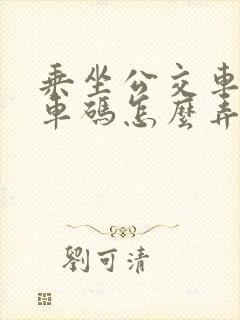 乘坐公交車
車碼怎麼弄
劉可清